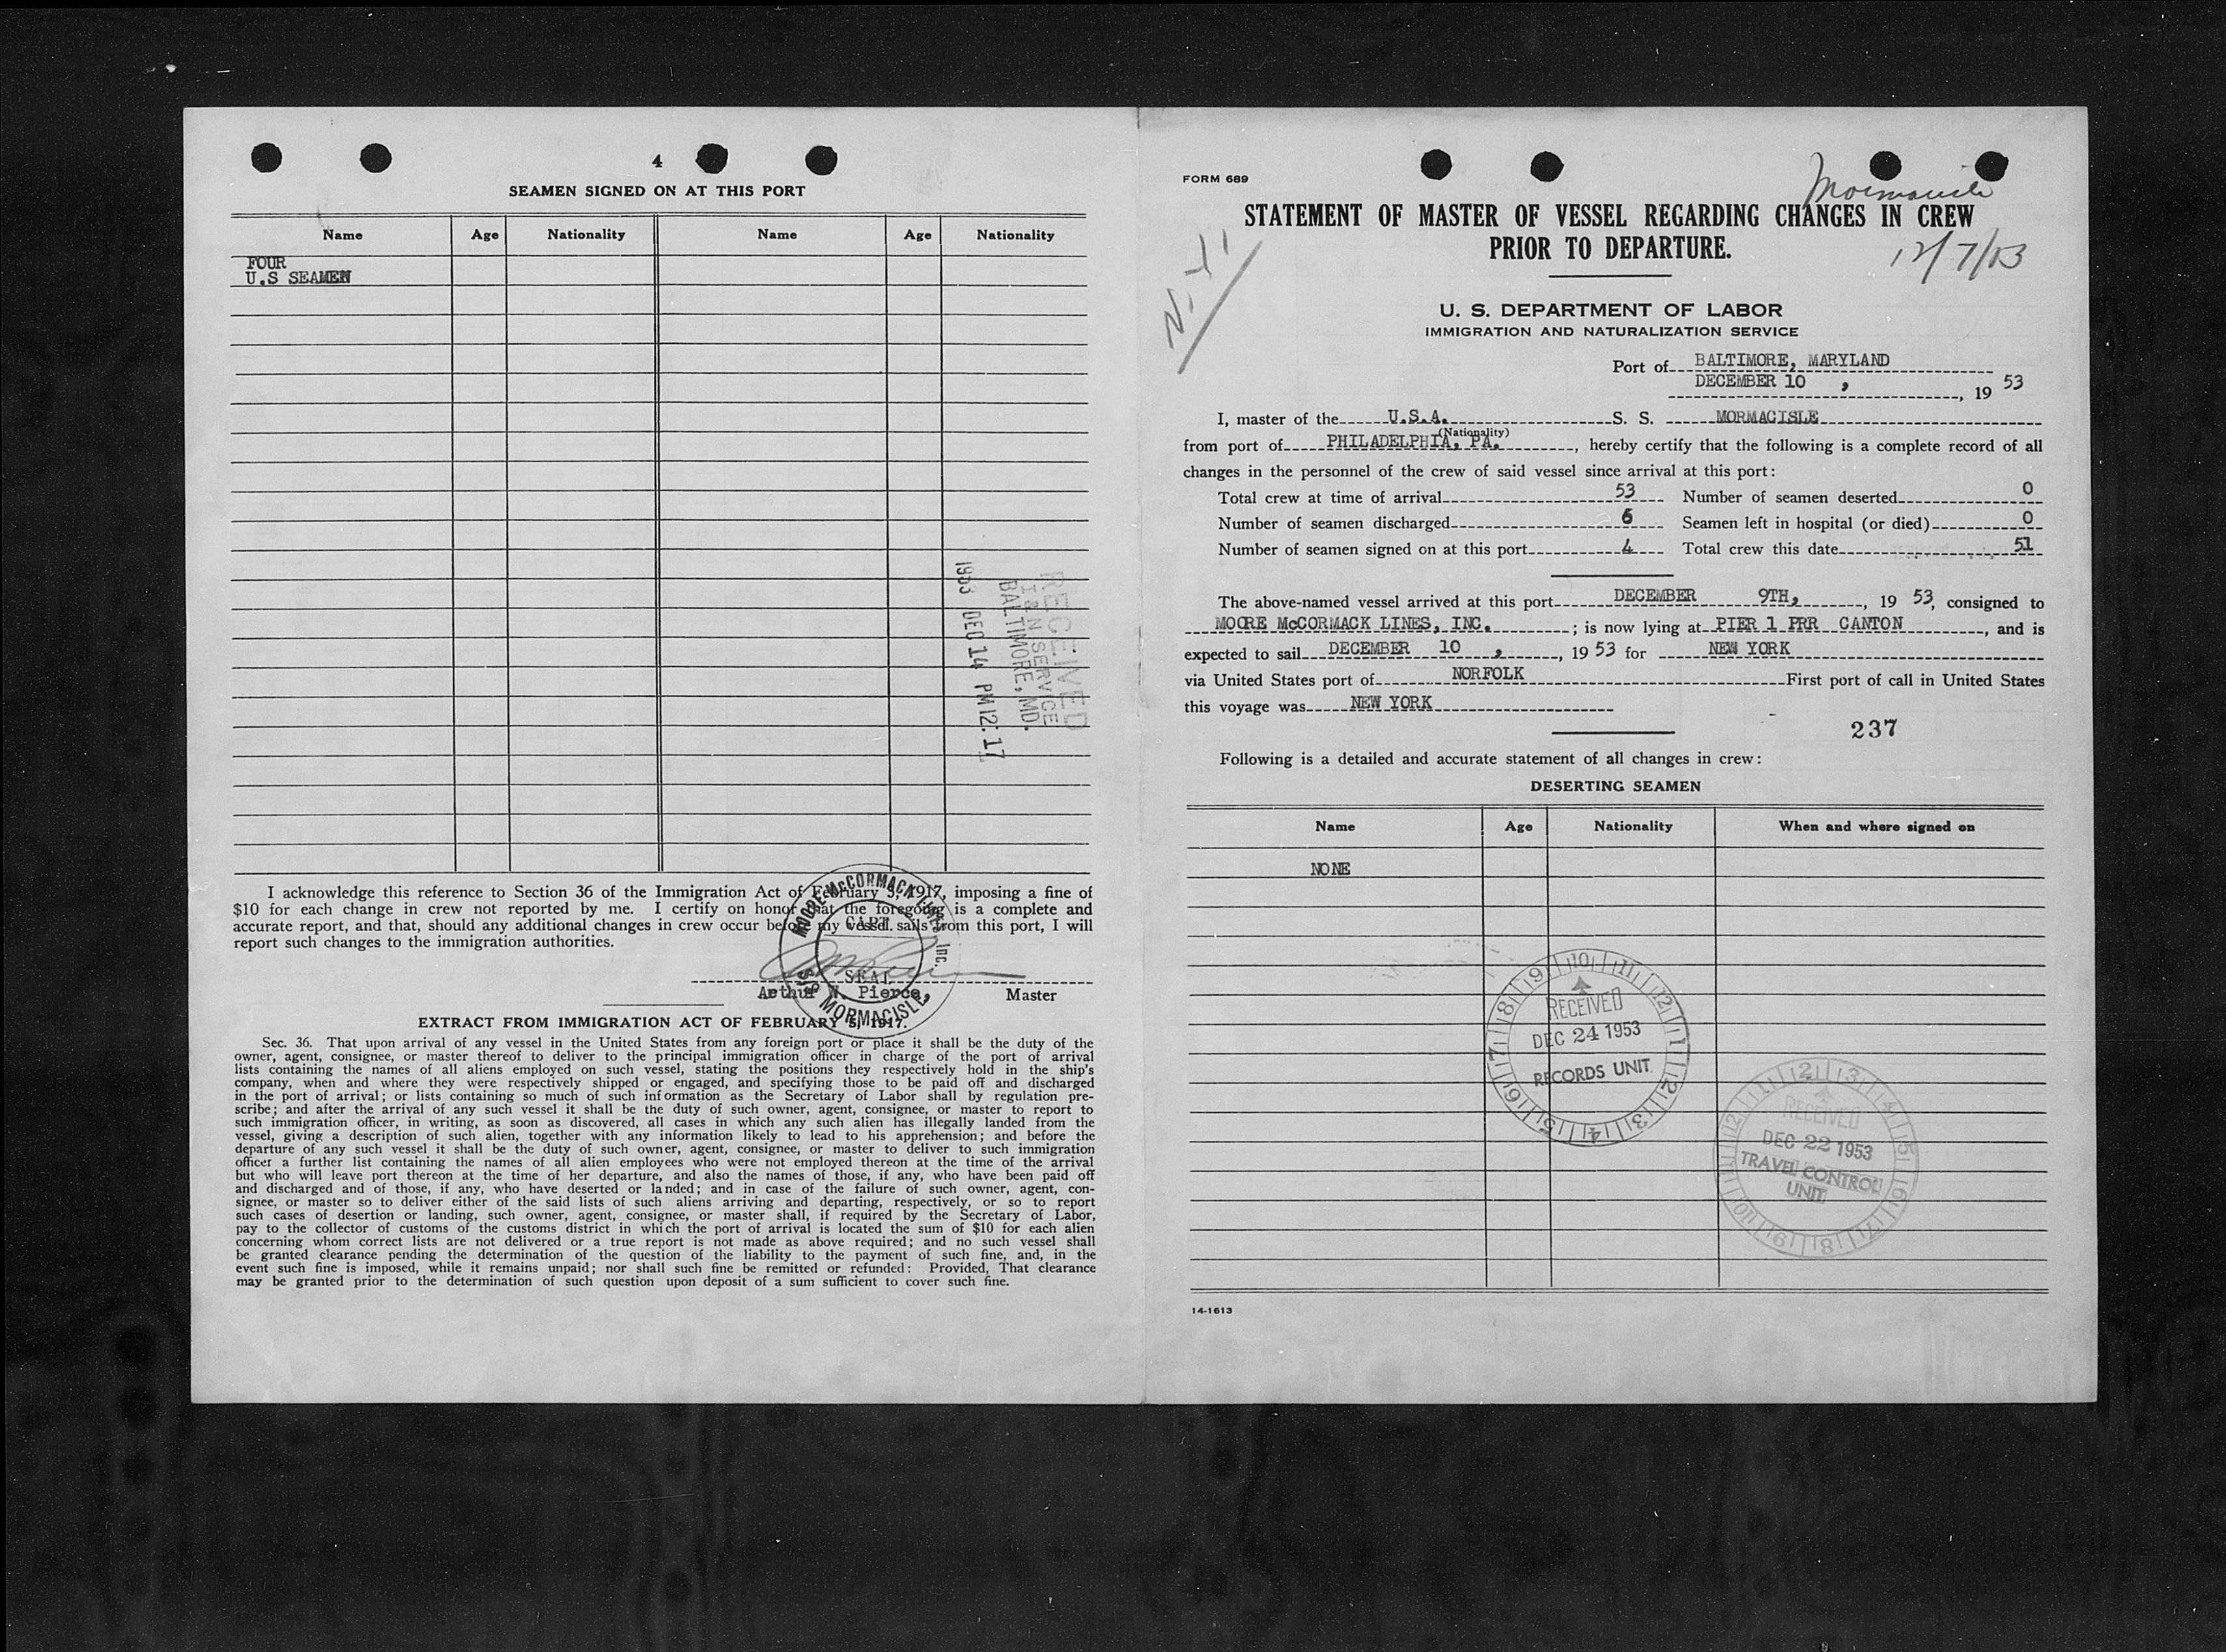 4
SEAMEN SIGNED ON AT THIS PORT
Name Age Nationality Name Age Nationality
FOUR
U.S SEAMEN
RECEIVED
I & N SERVICE
BALTIMORE, MD.
1953 DEC 14 PM 12:17
I acknowledge this reference to Section 36 of the Immigration Act of February 5, 1917, imposing a fine of
$10 for each change in crew not reported by me. I certify on honor that the foregoing is a complete and
accurate report, and that, should any additional changes in crew occur before my vessel sails from this port, I will
report such changes to the immigration authorities.
MOORE-McCORMACK LINES, Inc.
CAPT.
SEAL
S/S MORMACISLE
Arthur W. Pierce, Master
EXTRACT FROM IMMIGRATION ACT OF FEBRUARY 5, 1917.
Sec. 36. That upon arrival of any vessel in the United States from any foreign port or place it shall be the duty of the
owner, agent, consignee, or master thereof to deliver to the principal immigration officer in charge of the port of arrival
lists containing the names of all aliens employed on such vessel, stating the positions they respectively hold in the ship's
company, when and where they were respectively shipped or engaged, and specifying those to be paid off and discharged
in the port of arrival; or lists containing so much of such information as the Secretary of Labor shall by regulation pre-
scribe; and after the arrival of any such vessel it shall be the duty of such owner, agent, consignee, or master to report to
such immigration officer, in writing, as soon as discovered, all cases in which any such alien has illegally landed from the
vessel, giving a description of such alien, together with any information likely to lead to his apprehension; and before the
departure of any such vessel it shall be the duty of such owner, agent, consignee, or master to deliver to such immigration
officer a further list containing the names of all alien employees who were not employed thereon at the time of the arrival
but who will leave port thereon at the time of her departure, and also the names of those, if any, who have been paid off
and discharged and of those, if any, who have deserted or landed; and in case of the failure of such owner, agent, con-
signee, or master so to deliver either of the said lists of such aliens arriving and departing, respectively, or so to report
such cases of desertion or landing, such owner, agent, consignee, or master shall, if required by the Secretary of Labor,
pay to the collector of customs of the customs district in which the port of arrival is located the sum of $10 for each alien
concerning whom correct lists are not delivered or a true report is not made as above required; and no such vessel shall
be granted clearance pending the determination of the question of the liability to the payment of such fine, and, in the
event such fine is imposed, while it remains unpaid; nor shall such fine be remitted or refunded: Provided, That clearance
may be granted prior to the determination of such question upon deposit of a sum sufficient to cover such fine.
FORM 689
Mormacisle
STATEMENT OF MASTER OF VESSEL REGARDING CHANGES IN CREW
PRIOR TO DEPARTURE.
12/7/53
N.Y.
U. S. DEPARTMENT OF LABOR
IMMIGRATION AND NATURALIZATION SERVICE
Port of BALTIMORE, MARYLAND
DECEMBER 10 , , 19 53
I, master of the U.S.A. S. S. MORMACISLE
(Nationality)
from port of PHILADELPHIA, PA. , hereby certify that the following is a complete record of all
changes in the personnel of the crew of said vessel since arrival at this port:
Total crew at time of arrival 53 Number of seamen deserted 0
Number of seamen discharged 6 Seamen left in hospital (or died) 0
Number of seamen signed on at this port 4 Total crew this date 51
The above-named vessel arrived at this port DECEMBER 9TH, , 19 53, consigned to
MOORE McCORMACK LINES, INC. ; is now lying at PIER 1 PRR CANTON , and is
expected to sail DECEMBER 10 , , 19 53 for NEW YORK
via United States port of NORFOLK First port of call in United States
this voyage was NEW YORK
237
Following is a detailed and accurate statement of all changes in crew:
DESERTING SEAMEN
Name Age Nationality When and where signed on
NONE
RECEIVED
DEC 24 1953
RECORDS UNIT
RECEIVED
DEC 22 1953
TRAVEL CONTROL
UNIT
14-1613